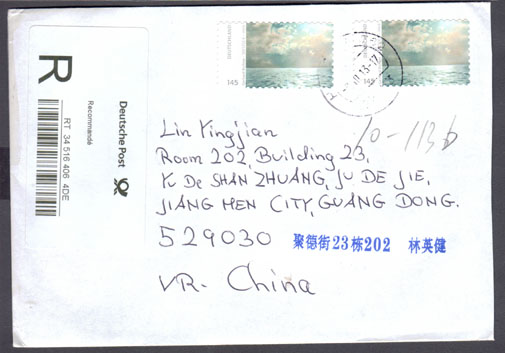 145
145
R
Recommandé
Deutsche Post
RT 34 516 406 4DE
10-1136
Lin Yingjian
Room 202, Building 23,
YU DE SHAN ZHUANG, JU DE JIE,
JIANG MEN CITY, GUANG DONG.
529030 聚德街23栋202 林英健
VR. China